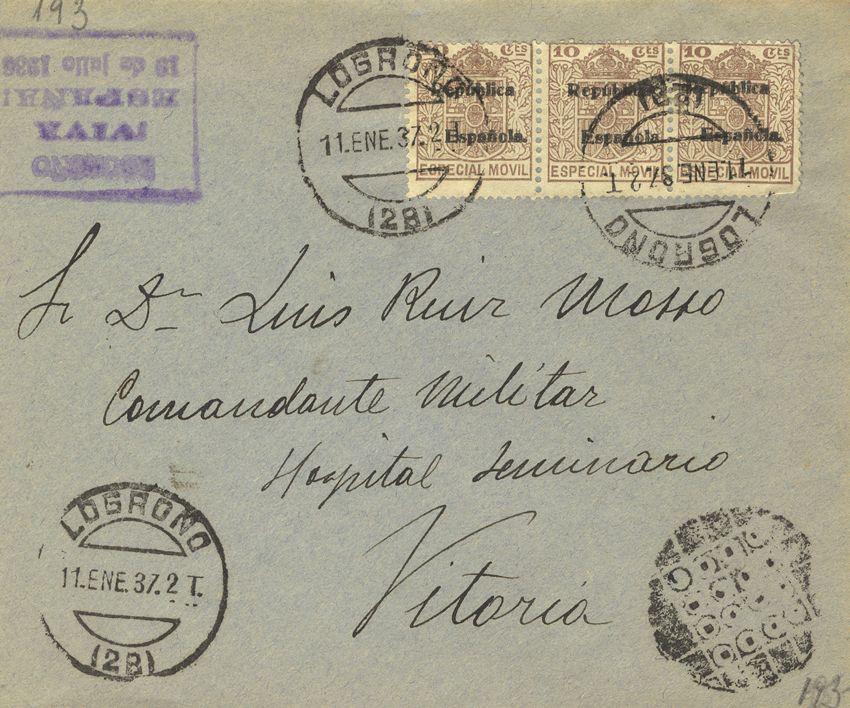 193
LOGROÑO
VIVA
ESPAÑA!
19 de julio 1936
LOGROÑO
11.ENE.37.2 T.
(28)
10 Cts
República
Española.
ESPECIAL MOVIL
10 Cts
República
Española.
ESPECIAL MOVIL
10 Cts
República
Española.
ESPECIAL MOVIL
(28)
11.ENE.37.2 T.
LOGROÑO
Sr Dn Luis Ruiz Mosso
Comandante Militar
Hospital Seminario
Vitoria
LOGROÑO
11.ENE.37.2 T.
(28)
193